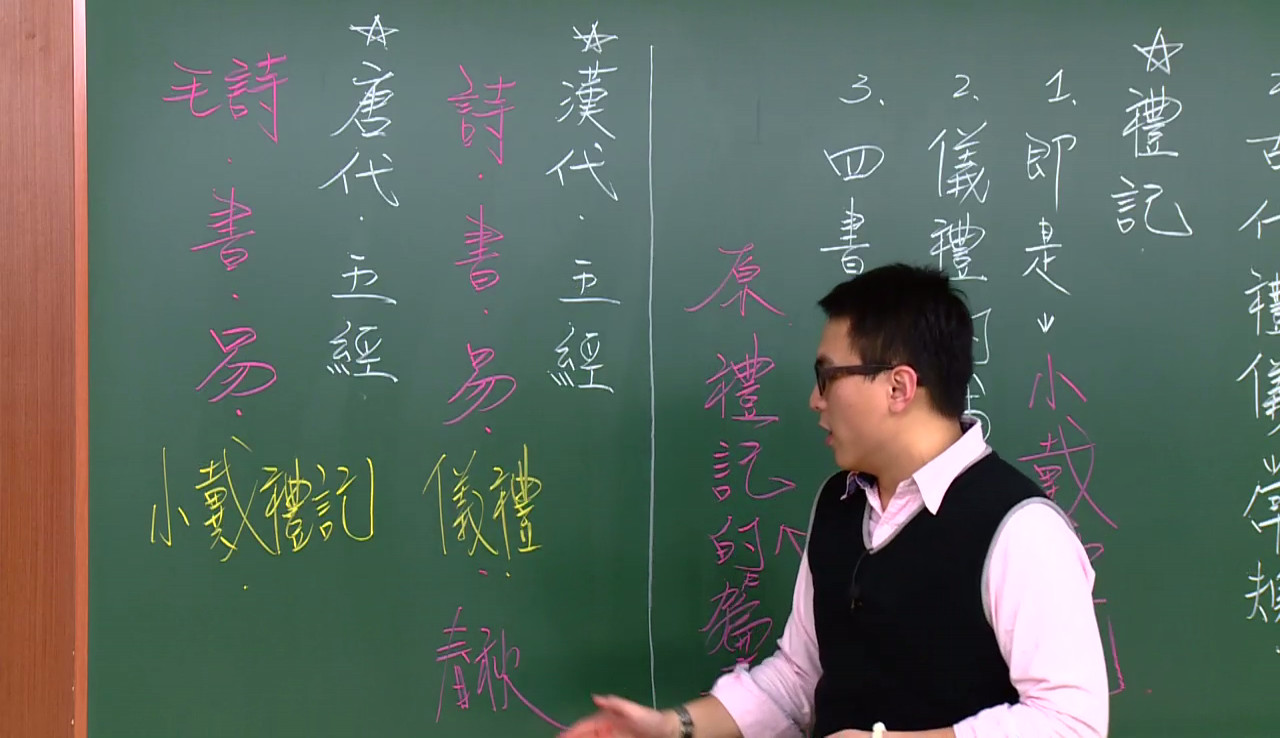 古代禮儀常規
☆禮記
1、即是→小戴
2、儀禮的
3、四書
原禮記的篇
☆漢代·五經
詩·書·易·儀禮·春秋
☆唐代·五經
毛詩·書·易·小戴禮記·